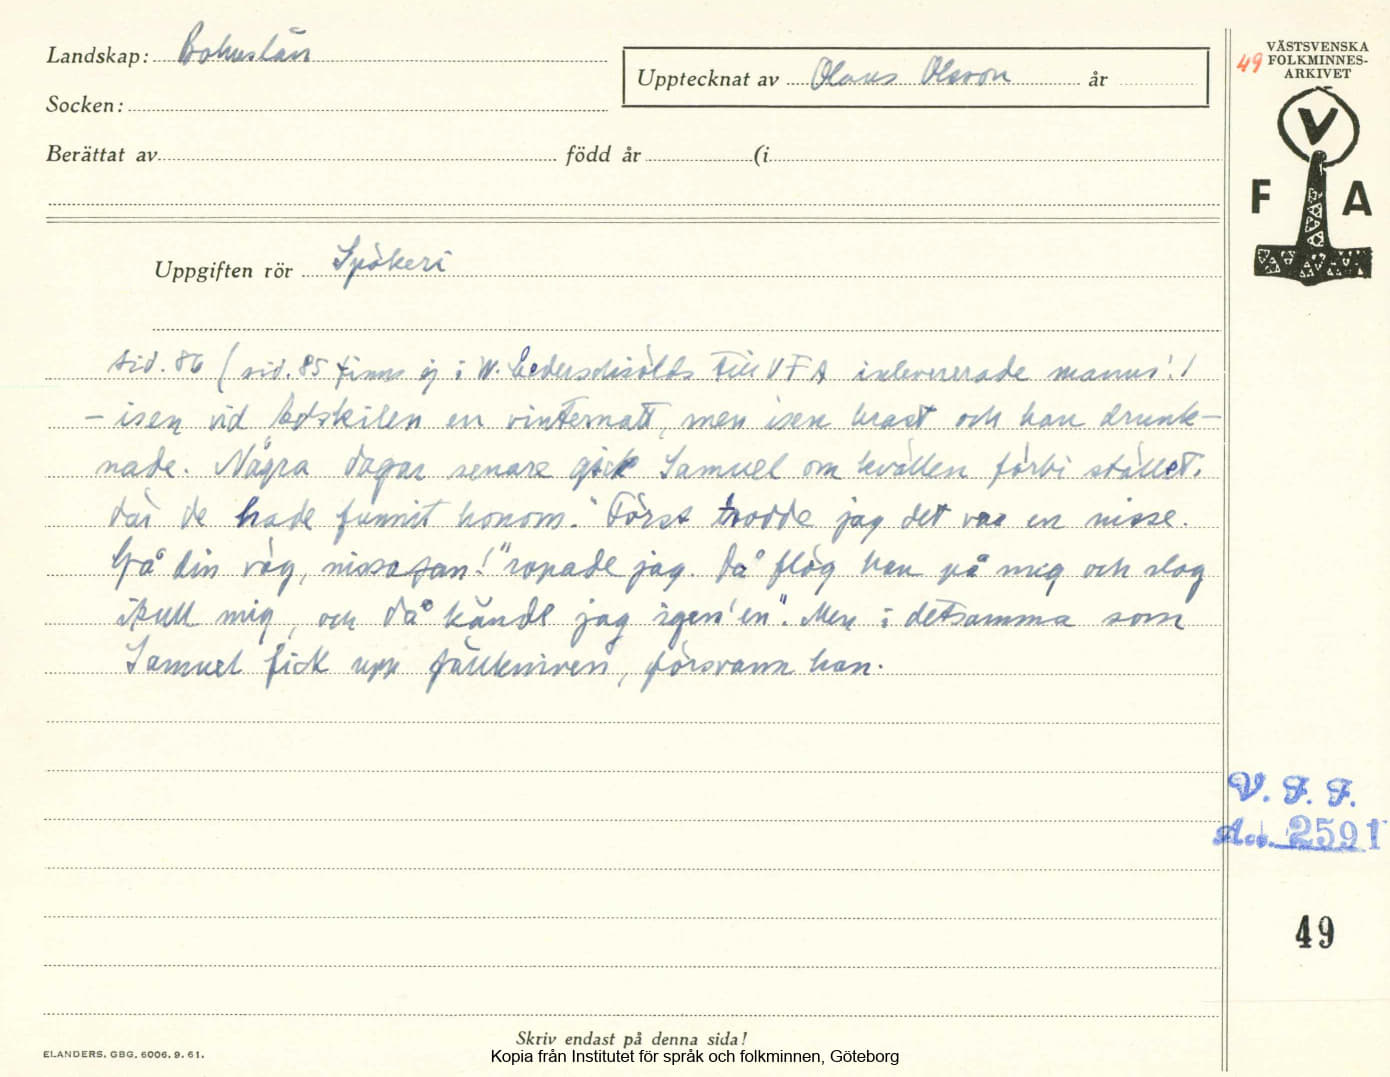 Landskap: Bohuslän
Upptecknat av Olaus Olsson år
Socken:
Berättat av född år (i
49
VÄSTSVENSKA
FOLKMINNES-
ARKIVET
V
F A
Uppgiften rör Spökeri
sid. 86 (sid. 85 finns ej i W. Cederschiölds till VFA inlevererade manus!)
– isen vid Edskilen en vinternatt, men isen brast och han drunk-
nade. Några dagar senare gick Samuel om kvällen förbi stället,
där de hade funnit honom. "Först trodde jag det var en nisse.
Gå din väg, nissafan!" ropade jag. Då flög han på mig och slog
ikull mig, och då kände jag igen'en". Men i detsamma som
Samuel fick upp fällkniven, försvann han.
V. F. F.
Acc. 2591
49
Skriv endast på denna sida!
ELANDERS, GBG, 6006. 9. 61.
Kopia från Institutet för språk och folkminnen, Göteborg